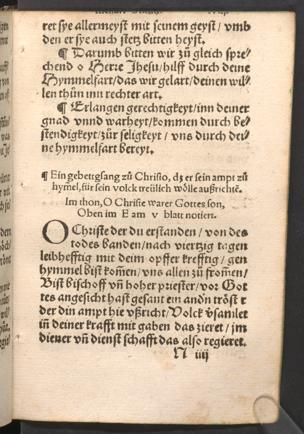 ret sye allermeyst mit seinem geyst / vmb
den er sye auch stetz bitten heyst.
¶ Darumb bitten wir zů gleich spre-
chend o Herre Jhesu / hilff durch deine
Hymmelfart / das wir gelart / deinen wil-
len thůn inn rechter art.
¶ Erlangen gerechtigkeyt / inn deiner
gnad vnnd warheyt / kommen durch be-
stendigkeyt / zůr seligkeyt / vns durch dei-
ne hymmelfart bereyt.
¶ Ein gebetgsang zů Christo, dz er sein ampt zů
hymel, für sein volck treülich wölle außrichtē.
Im thon, O Christe warer Gottes son,
Oben im E am v blatt notiert.
O Christe der du erstanden / von des
todes banden / nach viertzig tagen
leibhefftig mit deim opffer krefftig / gen
hymmel bist kom̄en / vns allen zů from̄en /
Bist bischoff vn̄ hoher priester / vor Got
tes angesicht hast gesant ein andn̄ tröst
der din ampt hie vßricht / Volck v̄samlet
in̄ deiner krafft mit gaben das zieret / jm
diener vn̄ dienst schafft das also regieret.
N iiij